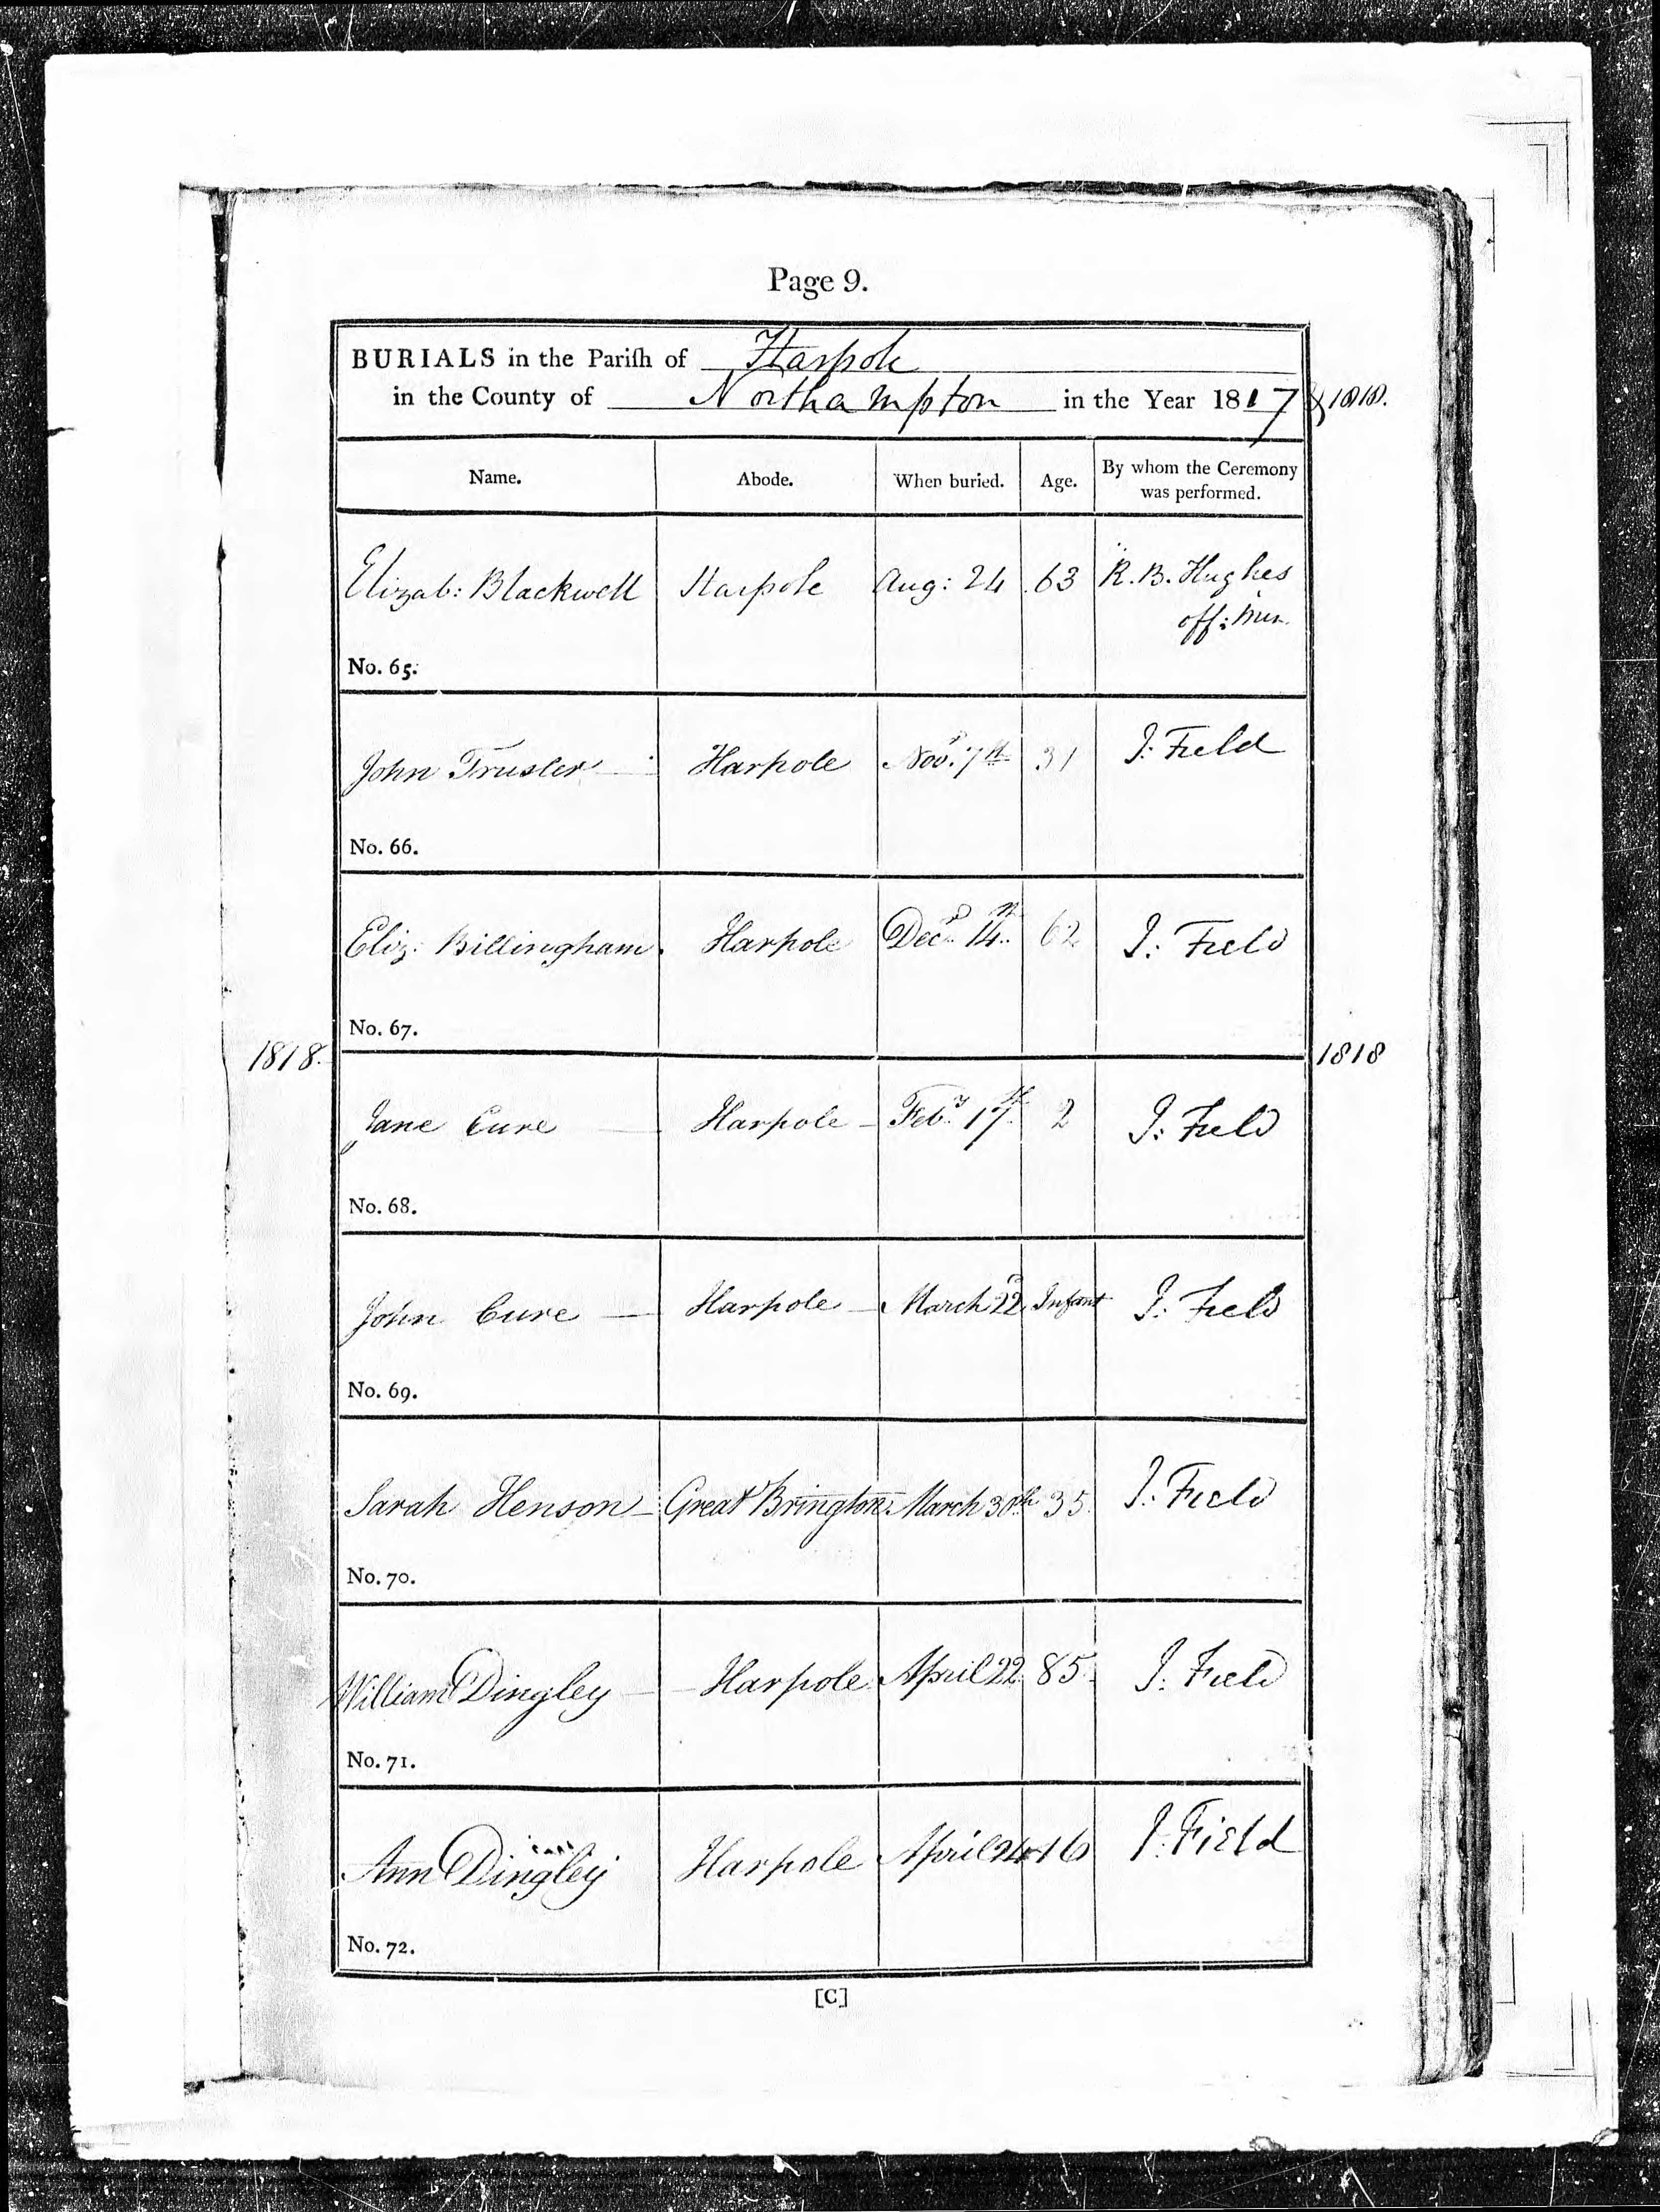 Page 9.
BURIALS in the Pariſh of Harpole
in the County of Northampton in the Year 1817 & 1818.
Name. Abode. When buried. Age. By whom the Ceremony was performed.
Elizab: Blackwell Harpole Aug: 24 63 R. B. Hughes
off: Min.
No. 65.
John Trusler Harpole Novr. 7th 31 J: Field
No. 66.
Eliz: Billingham. Harpole Decr. 14th 62 J: Field
No. 67.
1818. 1818
Jane Cure Harpole Feby. 17th 2 J: Field
No. 68.
John Cure Harpole March 22d Infant J: Field
No. 69.
Sarah Henson Great Brington March 30th 35 J: Field
No. 70.
William Dingley Harpole April 22 85 J: Field
No. 71.
Ann Dingley Harpole April 24 16 J: Field
No. 72.
[C]